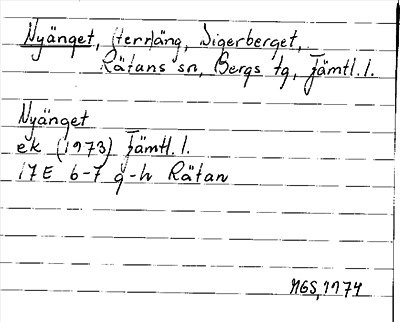 Nyänget, (terr)äng, Digerberget,
Rätans sn, Bergs tg, Jämtl. l.
Nyänget
ek (1973) Jämtl. l.
17E 6-7 g-h Rätan
MGS, 1974